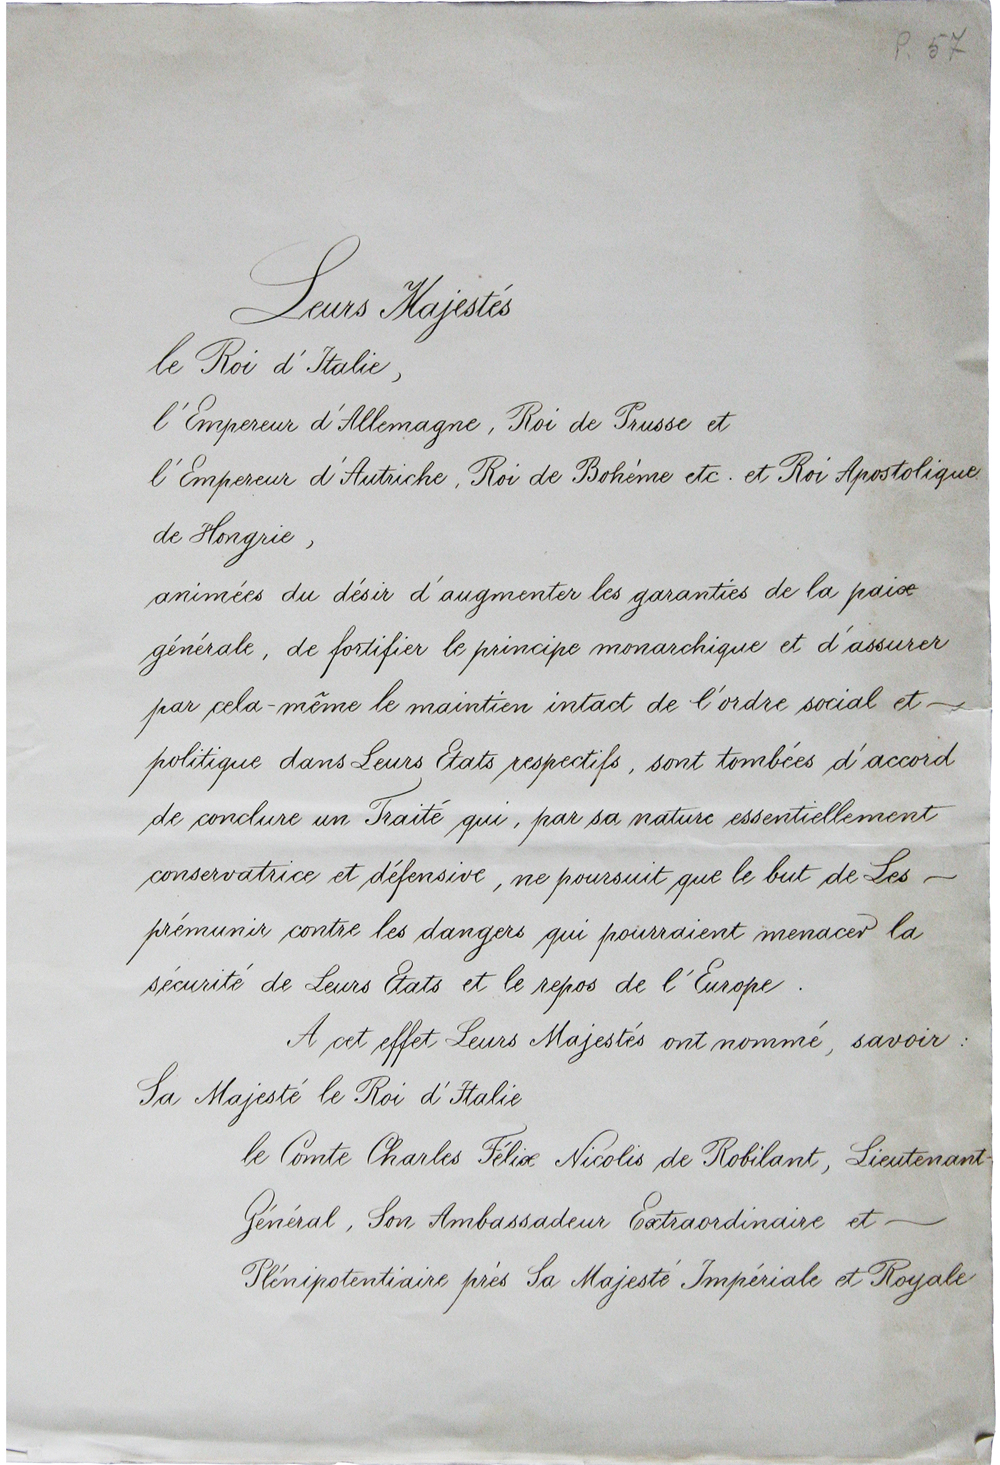 P. 57
Leurs Majestés
le Roi d'Italie,
l'Empereur d'Allemagne, Roi de Prusse et
l'Empereur d'Autriche, Roi de Bohème etc. et Roi Apostolique
de Hongrie,
animées du désir d'augmenter les garanties de la paix
générale, de fortifier le principe monarchique et d'assurer
par cela-même le maintien intact de l'ordre social et —
politique dans Leurs Etats respectifs, sont tombées d'accord
de conclure un Traité qui, par sa nature essentiellement
conservatrice et défensive, ne poursuit que le but de Les —
prémunir contre les dangers qui pourraient menacer la
sécurité de Leurs Etats et le repos de l'Europe.
A cet effet Leurs Majestés ont nommé, savoir:
Sa Majesté le Roi d'Italie
le Comte Charles Félix Nicolis de Robilant, Lieutenant-
Général, Son Ambassadeur Extraordinaire et —
Plénipotentiaire près Sa Majesté Impériale et Royale